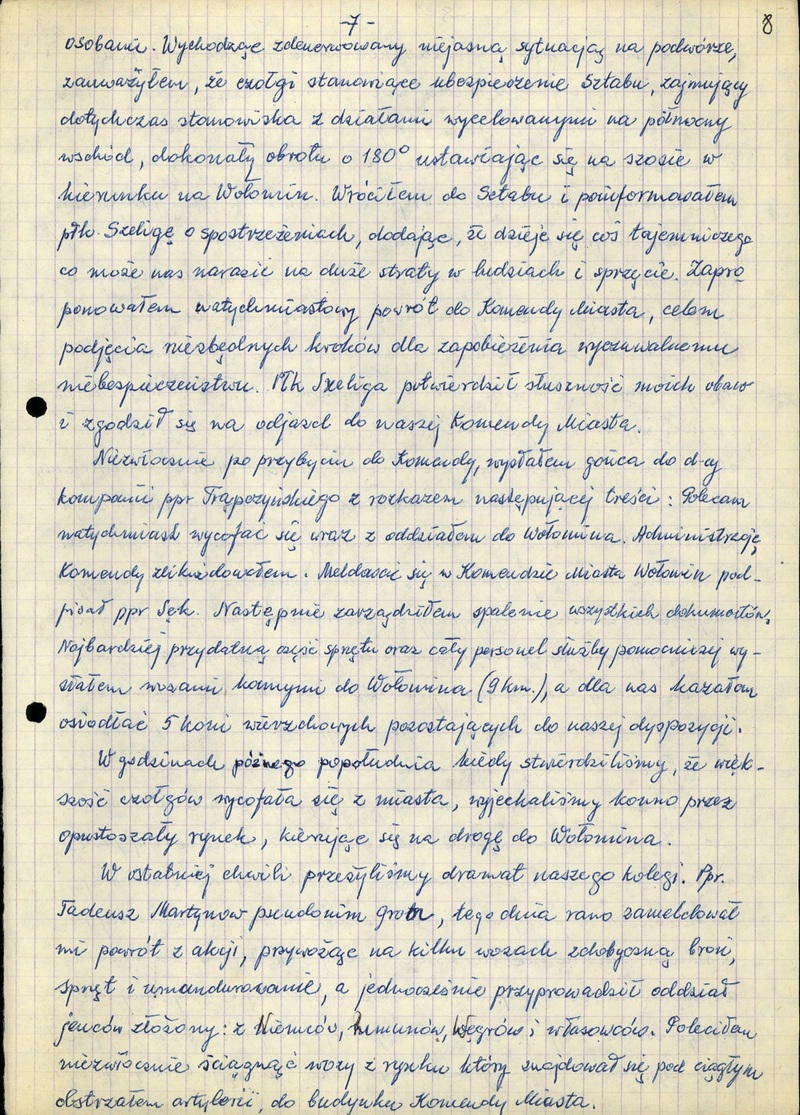 -7-
8
osobami. Wychodząc zdenerwowany niejasną sytuacją na podwórze,
zauważyłem, że czołgi stanowiące ubezpieczenie Sztabu, zajmujący
dotychczas stanowiska z działami wycelowanymi na północny
wschód, dokonały obrotu o 180° ustawiając się na szosie w
kierunku na Wołomin. Wróciłem do Sztabu i poinformowałem
płk. Szeligę o spostrzeżeniach, dodając, że dzieje się coś tajemniczego
co może nas narazić na duże straty w ludziach i sprzęcie. Zapro
ponowałem natychmiastowy powrót do Komendy Miasta, celem
podjęcia niezbędnych kroków dla zapobieżenia wyczuwalnemu
niebezpieczeństwu. Płk Szeliga potwierdził słuszność moich obaw
i zgodził się na odjazd do naszej Komendy Miasta.
Niezwłocznie po przybyciu do Komendy, wysłałem gońca do d-cy
kompanii ppr Trąpczyńskiego z rozkazem następującej treści: Polecam
natychmiast wycofać się wraz z oddziałem do Wołomina. Administrację
Komendy zlikwidowałem. Meldować się w Komendzie Miasta Wołomin pod-
pisał ppr Sęk. Następnie zarządziłem spalenie wszystkich dokumentów.
Najbardziej przydatną część sprzętu oraz cały personel służby pomocniczej wy-
słałem wozami konnymi do Wołomina (9 km.), a dla nas kazałem
osiodłać 5 koni wierzchowych pozostających do naszej dyspozycji.
W godzinach późnego popołudnia kiedy stwierdziliśmy, że więk-
szość czołgów wycofała się z miasta, wyjechaliśmy konno przez
opustoszały rynek, kierując się na drogę do Wołomina.
W ostatniej chwili przeżyliśmy dramat naszego kolegi. Ppr.
Tadeusz Martynow pseudonim grot, tego dnia rano zameldował
mi powrót z akcji, przywożąc na kilku wozach zdobyczną broń,
sprzęt i umundurowanie, a jednocześnie przyprowadził oddział
jeńców złożony: z Niemców, Rumunów, Węgrów i własowców. Poleciłem
niezwłocznie ściągnąć wozy z rynku który znajdował się pod ciągłym
obstrzałem artylerii, do budynku Komendy Miasta.